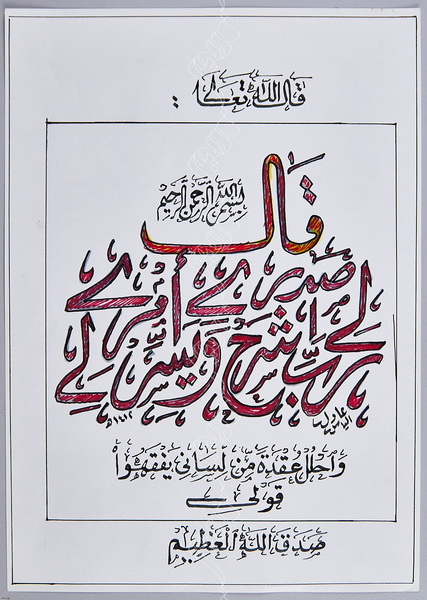 قال الله تعالى :
بسم الله الرحمن الرحيم
قال
رب اشرح لي صدري ويسر لي أمري
واحلل عقدة من لساني يفقهوا
قولي
صدق الله العظيم